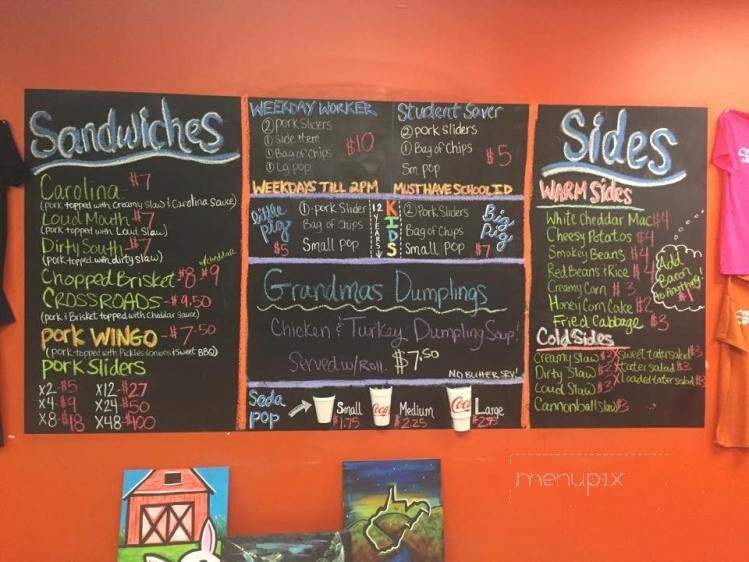 Sandwiches
Carolina - $7
(pork topped with Creamy Slaw & Carolina Sauce)
Loud Mouth - $7
(pork topped with Loud Slaw)
Dirty South - $7
(Pork topped with dirty slaw)
w/cheddar
Chopped Brisket - $8 $9
CROSSROADS - $9.50
(pork & Brisket topped with Cheddar Sauce)
pork WINGO - $7.50
(pork topped with Pickles Onions & Sweet BBQ)
pork Sliders
x2-$5 x12-$27
x4-$9 x24-$50
x8-$18 x48-$100
WEEKDAY WORKER
② pork Sliders
① Side Item
① Bag of Chips
① Lg. pop
$10
WEEKDAYS TILL 2PM
Student Saver
② pork Sliders
① Bag of Chips
Sm pop
$5
MUST HAVE SCHOOL ID
little pig
$5
①-pork Slider
Bag of Chips
Small pop
12 YEARS
KIDS
② Pork Sliders
Bag of Chips
Small pop
Big pig
$7
Grandmas Dumplings
Chicken & Turkey Dumpling Soup!
Served w/Roll. $7.50
NO BUTTER SRY!
Soda pop
Small $1.75
Medium $2.25
Large
Coca
Sides
WARM Sides
White Cheddar Mac $4
Cheesy Potatos - $4
Smokey Beans - $4
Red Beans & Rice - $4
Creamy Corn - $3
Honey Corn Cake - $2
Fried Cabbage - $3
Add Bacon to Anything!
$1
Cold Sides
Creamy Slaw $3
Dirty Slaw $3
Loud Slaw $3
Cannonball Slaw $3
Sweet tater salad $3
tater salad $3
Loaded tater salad $3
menupix